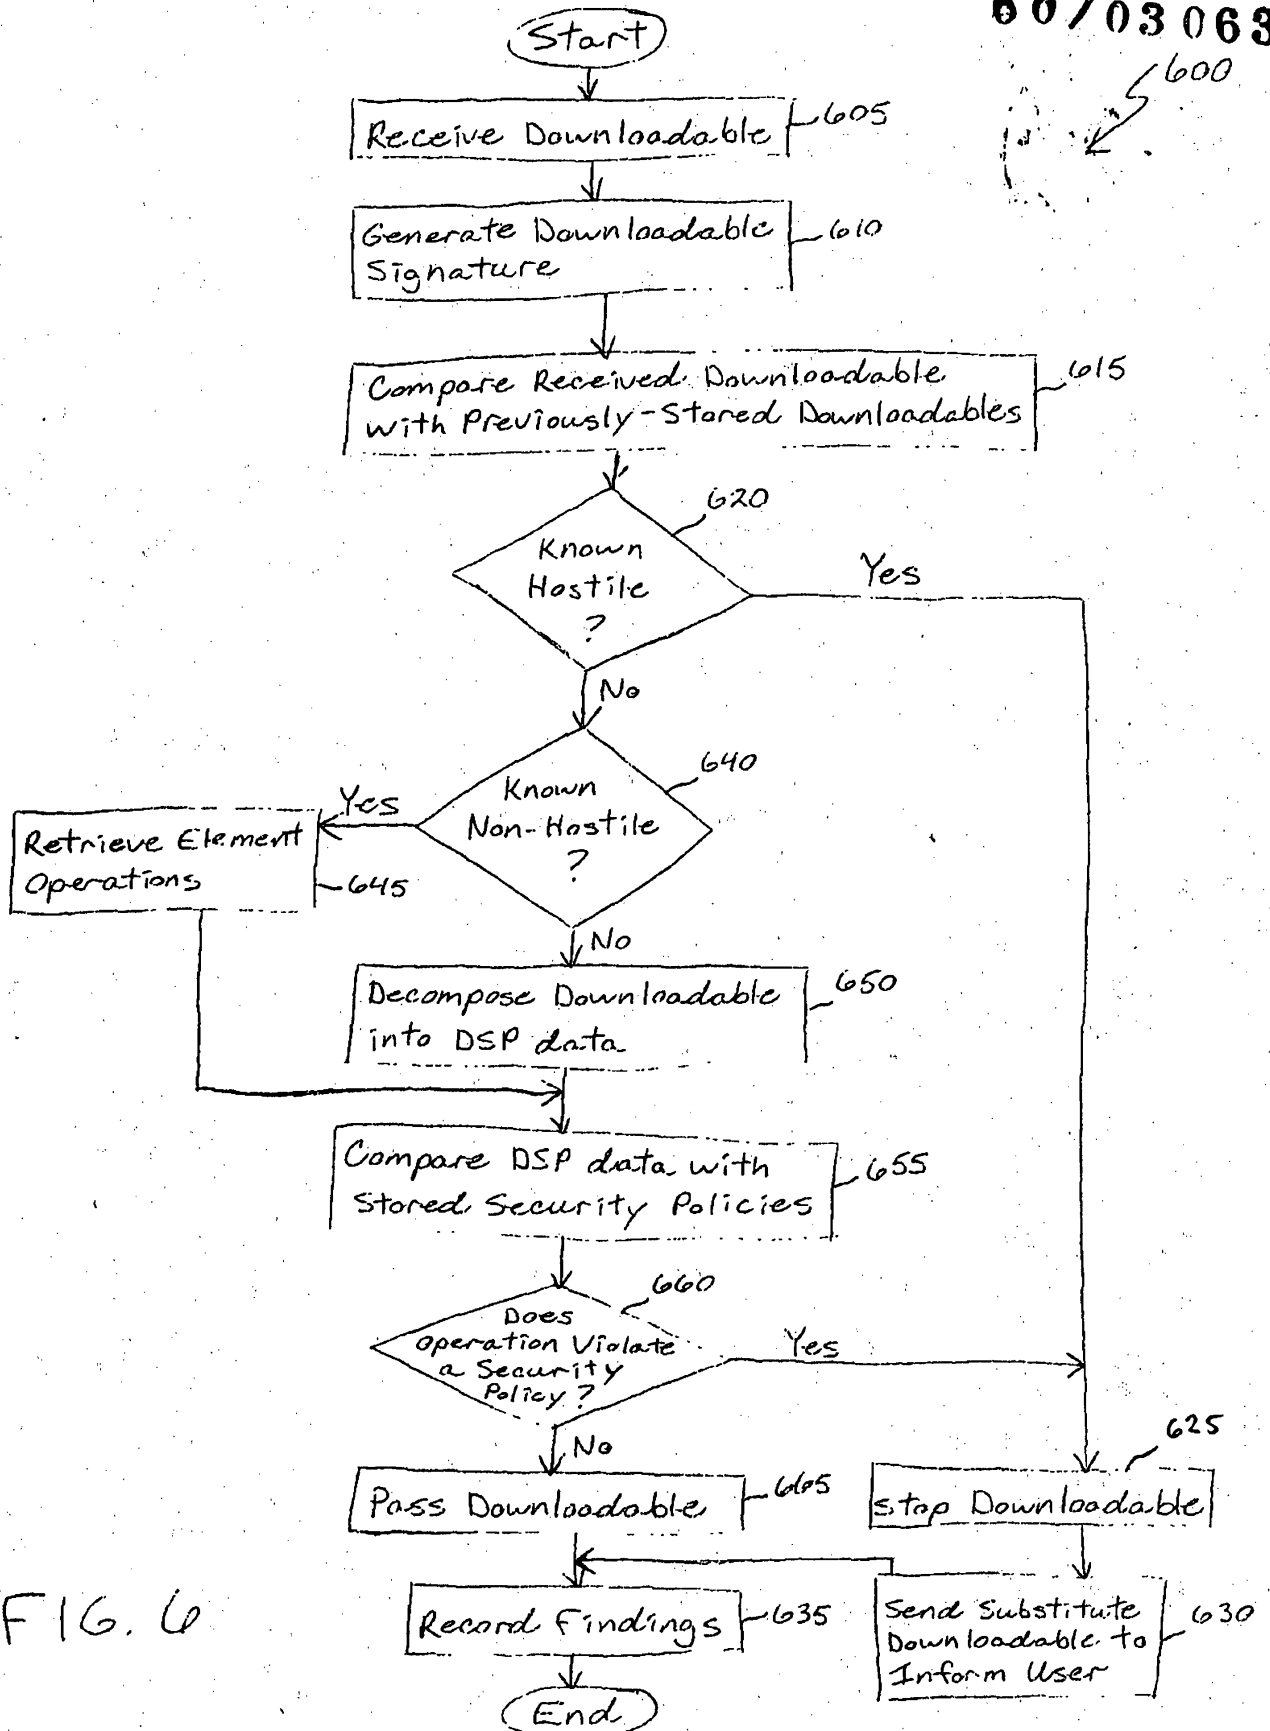 60/03063
Start
600
Receive Downloadable
605
Generate Downloadable
Signature
610
Compare Received Downloadable
with Previously-Stored Downloadables
615
620
Known
Hostile
?
Yes
No
640
Known
Non-Hostile
?
Yes
Retrieve Element
Operations
645
No
Decompose Downloadable
into DSP data
650
Compare DSP data with
Stored Security Policies
655
660
Does
Operation Violate
a Security
Policy?
Yes
No
625
Pass Downloadable
665
Stop Downloadable
Record Findings
635
Send Substitute
Downloadable to
Inform User
630
FIG. 6
End